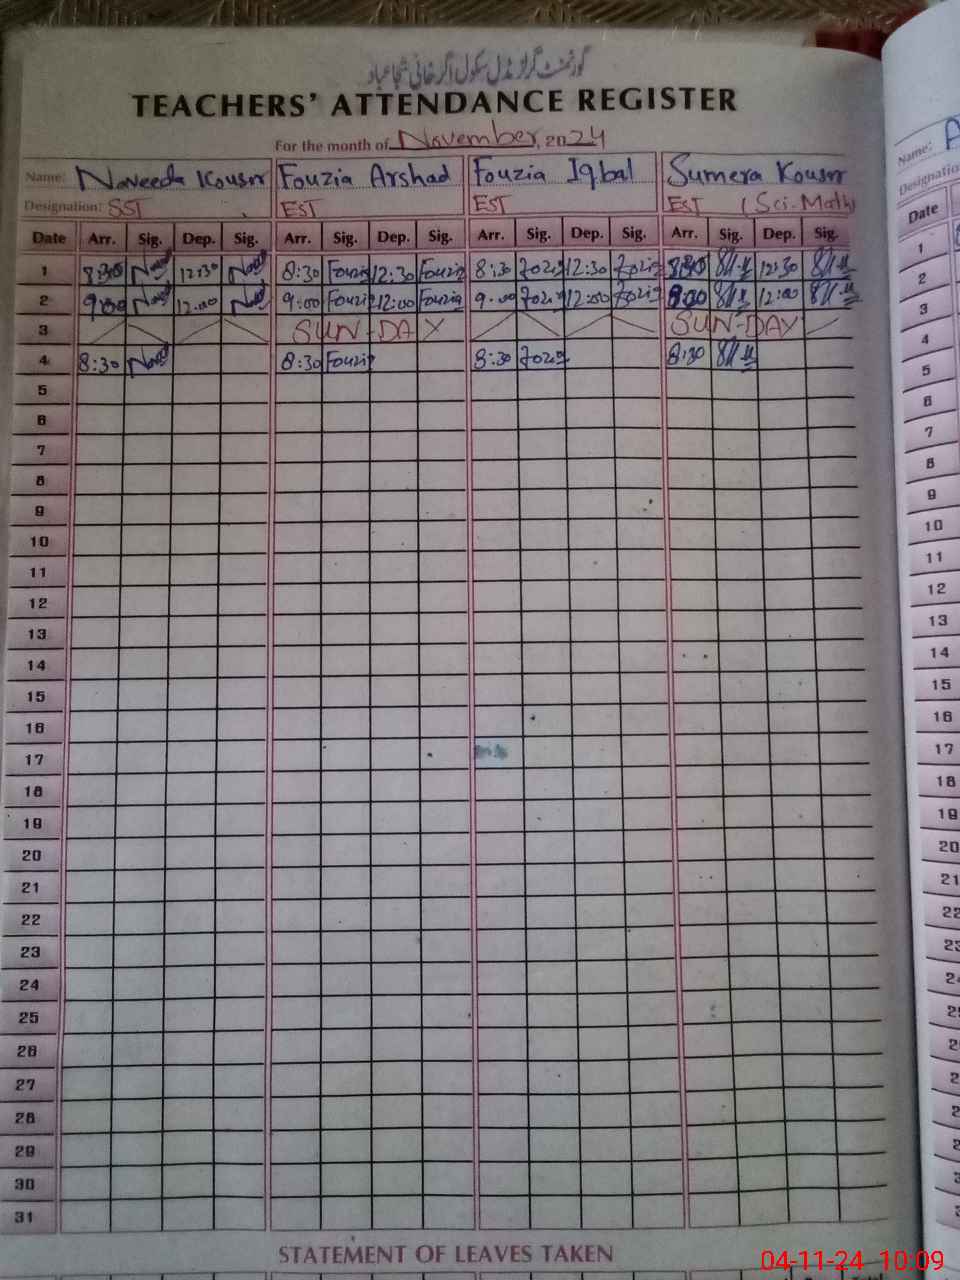 گورنمنٹ گرلز مڈل سکول اگر خانی شجاعباد
TEACHERS' ATTENDANCE REGISTER
For the month of November, 2024
Name: Naveeda Kousar Fouzia Arshad Fouzia Iqbal Sumera Kousar
Designation: SST EST EST EST (Sci-Math)
Date Arr. Sig. Dep. Sig. Arr. Sig. Dep. Sig. Arr. Sig. Dep. Sig. Arr. Sig. Dep. Sig.
1 8:30 12:30 8:30 Fouzia 12:30 Fouzia 8:30 Fozia 12:30 Fozia 8:30 12:30
2 9:00 12:00 9:00 Fouzia 12:00 Fouzia 9:00 Fozia 12:00 Fozia 9:00 12:00
3 SUN-DAY SUN-DAY
4 8:30 8:30 Fouzia 8:30 Fozia 8:30
5
6
7
8
9
10
11
12
13
14
15
16
17
18
19
20
21
22
23
24
25
26
27
28
29
30
31
STATEMENT OF LEAVES TAKEN
04-11-24 10:09
Name:
Date
1
2
3
4
5
6
7
8
9
10
11
12
13
14
15
16
17
18
19
20
21
22